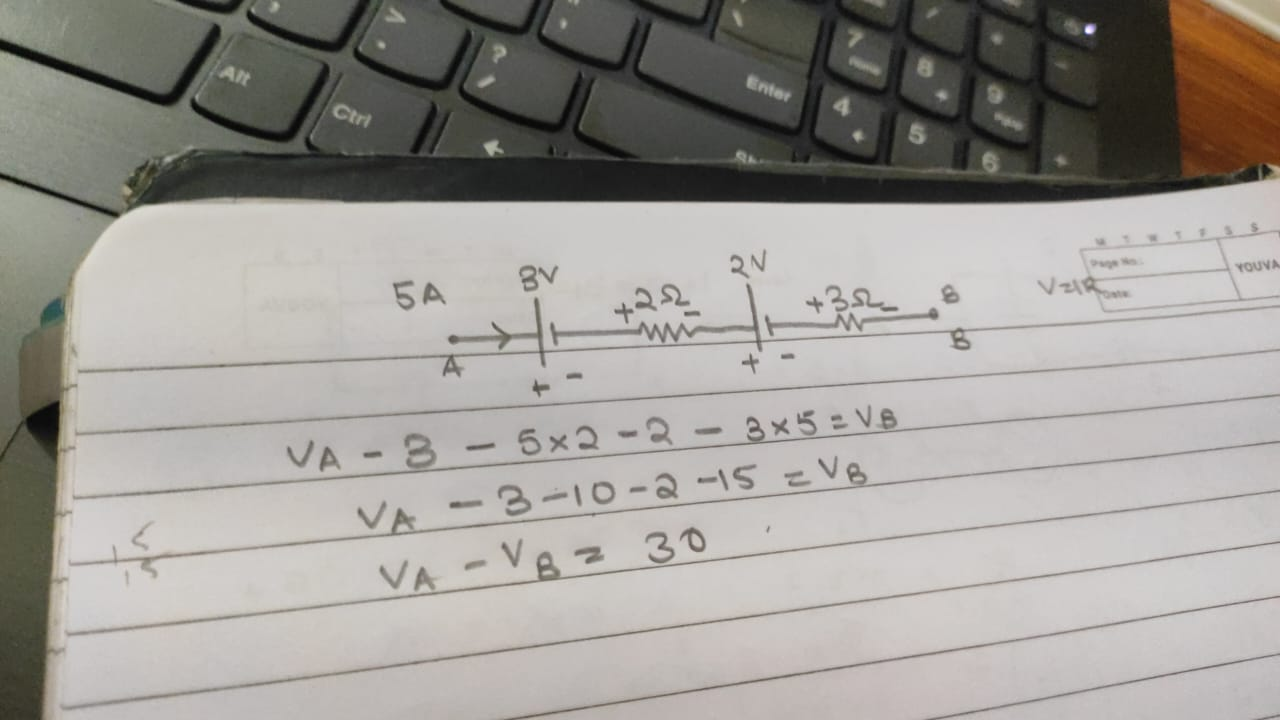 Alt
Ctrl
>
.
?
/
Enter
7
Home
8
9
PgUp
4
5
6
+
M T W T F S S
Page No.:
Date:
YOUVA
V=IR
5A
3V
+2Ω-
2V
+3Ω-
B
A
+ -
+ -
B
VA - 3 - 5×2 - 2 - 3×5 = VB
VA - 3 - 10 - 2 - 15 = VB
VA - VB = 30
15